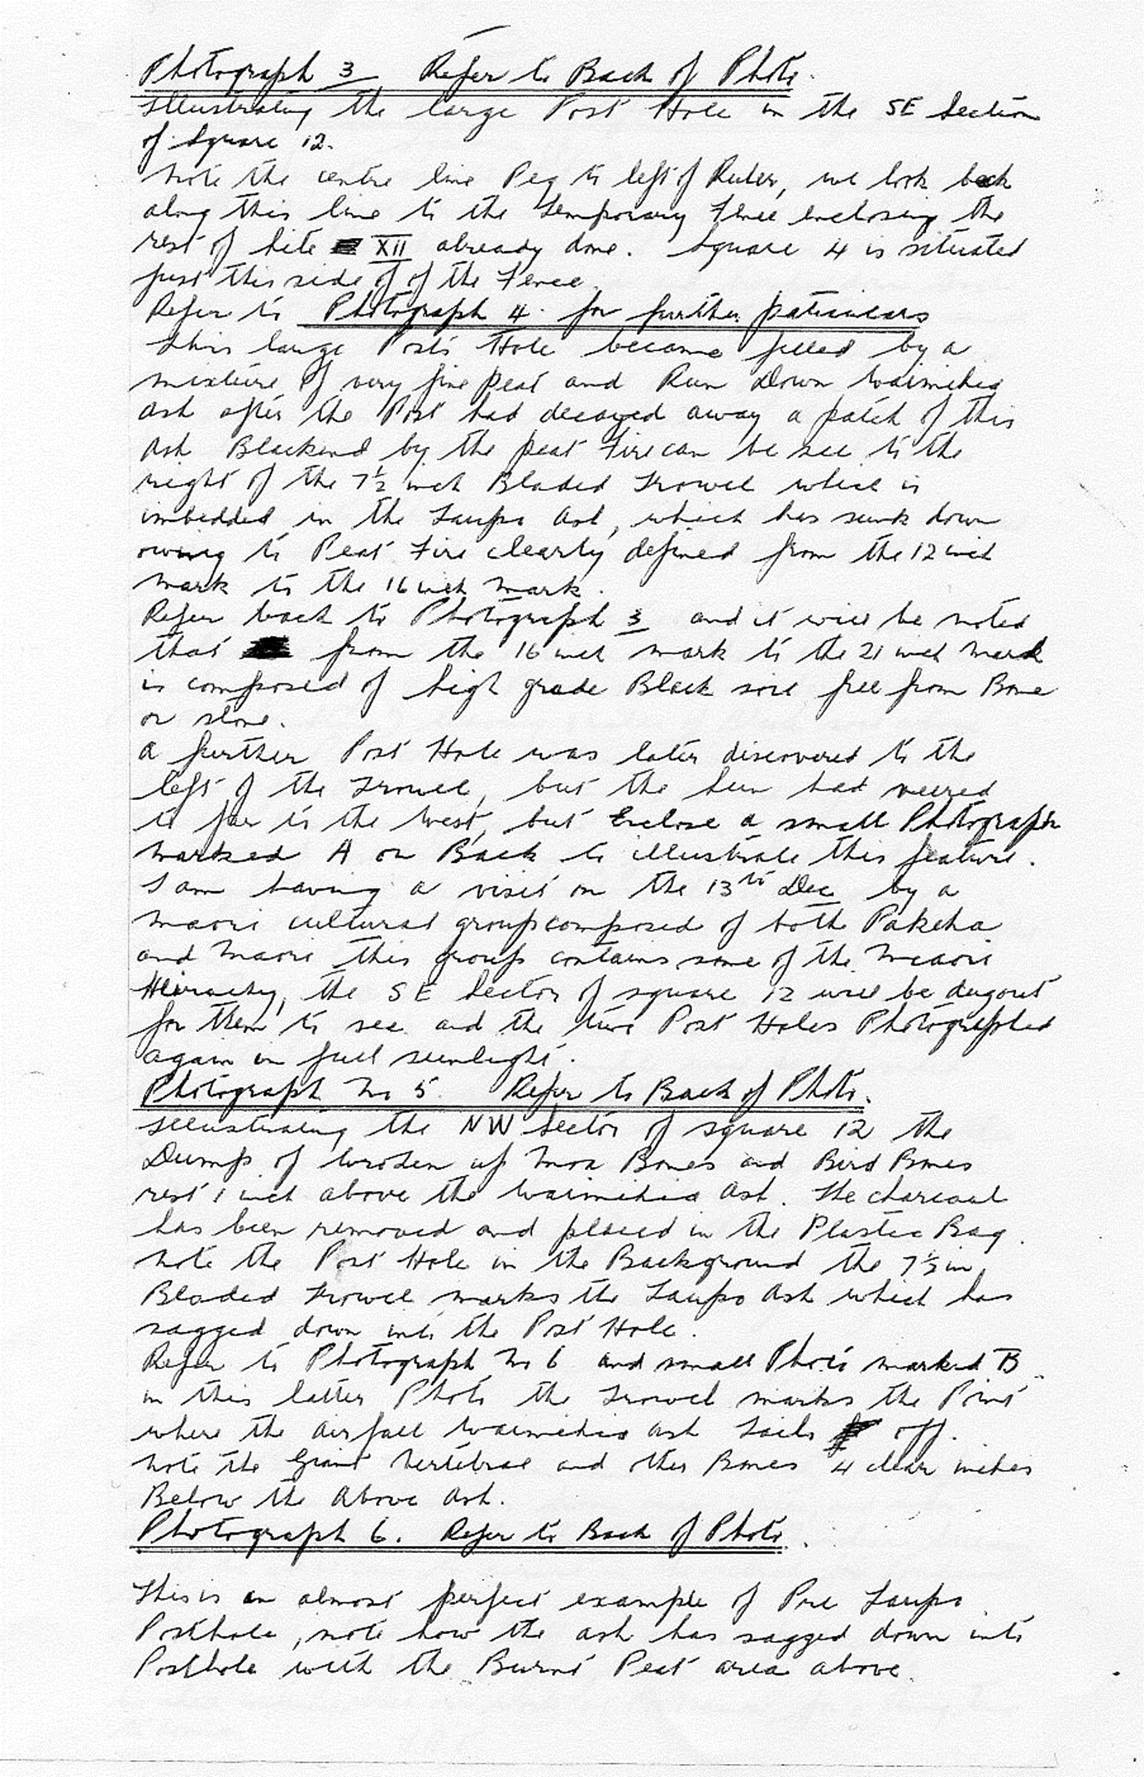 Photograph 3 Refer to Back of Photo.
Illustrating the large Post Hole in the SE Section
of Square 12.
Note the centre line Peg to left of Ruler, we look back
along this line to the Temporary Fence enclosing the
rest of Site XII already done. Square 4 is situated
just this side of of the Fence.
Refer to Photograph 4. for further paticulars
This large Posts Hole became filled by a
mixture of very fine peat and Run Down Waimihia
Ash after the Post had decayed away a patch of this
Ash Blackend by the peat Fire can be see to the
right of the 7½ inch Bladed Trowel which is
imbedded in the Taupo Ash, which has sunk down
owing to Peat Fire clearly defined from the 12 inch
mark to the 16 inch mark.
Refer back to Photograph 3 and it will be noted
that from the 16 inch mark to the 21 inch mark
is composed of high grade Black soil free from Bone
or stone.
A further Post Hole was later discovered to the
left of the Trowel, but the Sun had veered
to far to the West, but Enclose a small Photograph
marked A on Back to illustrate this feature.
I am having a visit on the 13th Dec by a
Maori cultural group composed of both Pakeha
and Maori this group contains some of the Maori
Heirachy, the SE Sector of square 12 will be dugout
for them to see and the two Post Holes Photographed
again in full sunlight.
Photograph No 5. Refer to Back of Photo.
Illustrating the NW Sector of square 12 the
Dump of broken up Moa Bones and Bird Bones
rest 1 inch above the Waimihia Ash. The charcoal
has been removed and placed in the Plastic Bag.
Note the Post Hole in the Background the 7½ in
Bladed Trowel marks the Taupo Ash which has
sagged down into the Post Hole.
Refer to Photograph No 6 and small Photo marked B
in this latter Photo the Trowel marks the Point
where the airfall Waimihia Ash Tails off.
Note the Giant Vertebrae and other Bones 4 clear inches
Below the Above Ash.
Photograph 6. Refer to Back of Photo.
This is an almost perfect example of Pre Taupo
Posthole, note how the ash has sagged down into
Posthole with the Burnt Peat area above.